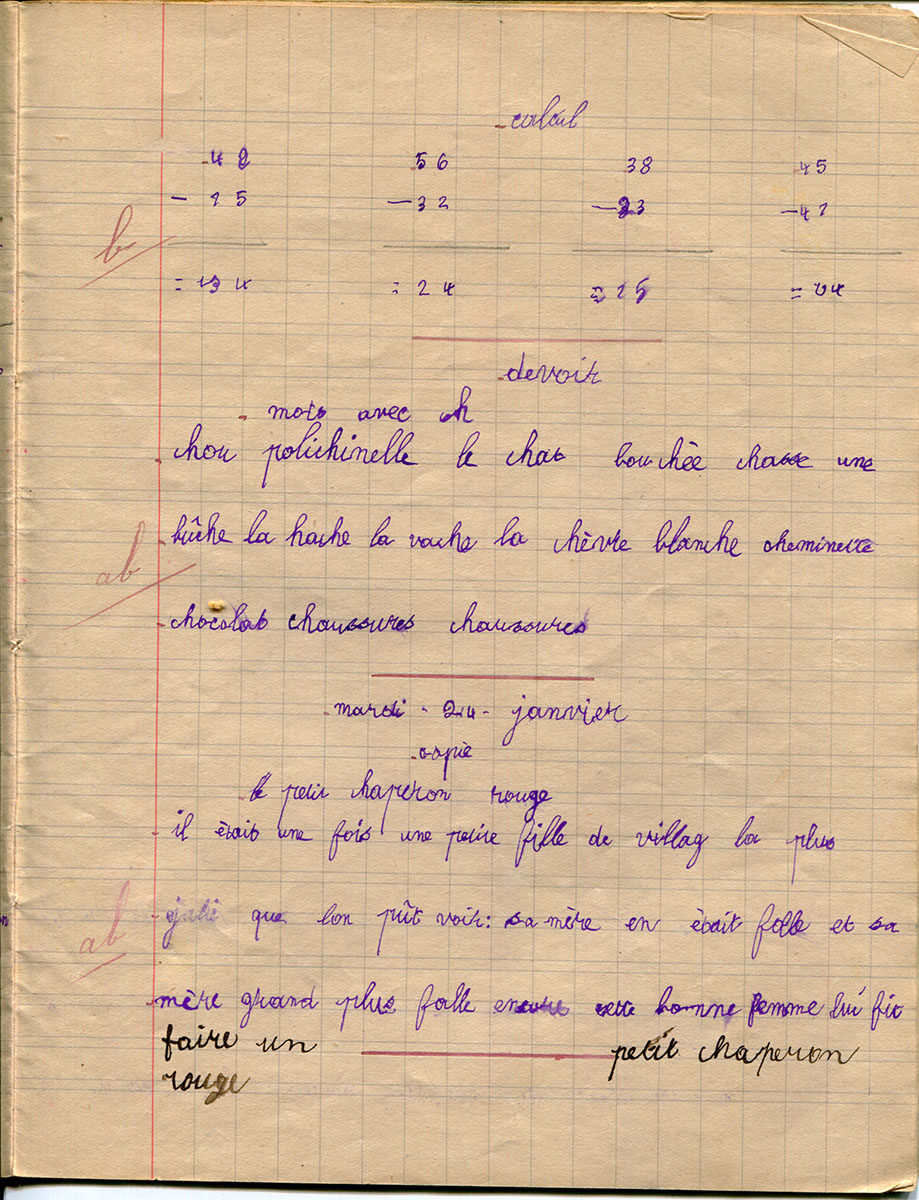 calcul
48 56 38 45
- 15 - 32 - 23 - 41
b
= 34 = 24 = 15 = 04
devoir
mots avec ch
chou polichinelle le chat bouchée chasse une
bûche la hache la vache la chèvre blanche cheminette
ab
chocolat chaussures chaussures
mardi - 24 - janvier
copie
le petit chaperon rouge
il était une fois une petite fille de villag la plus
ab
que lon pût voir: sa mère en était folle et sa
mère grand plus folle encore cette bonne femme lui fit
faire un petit chaperon
rouge